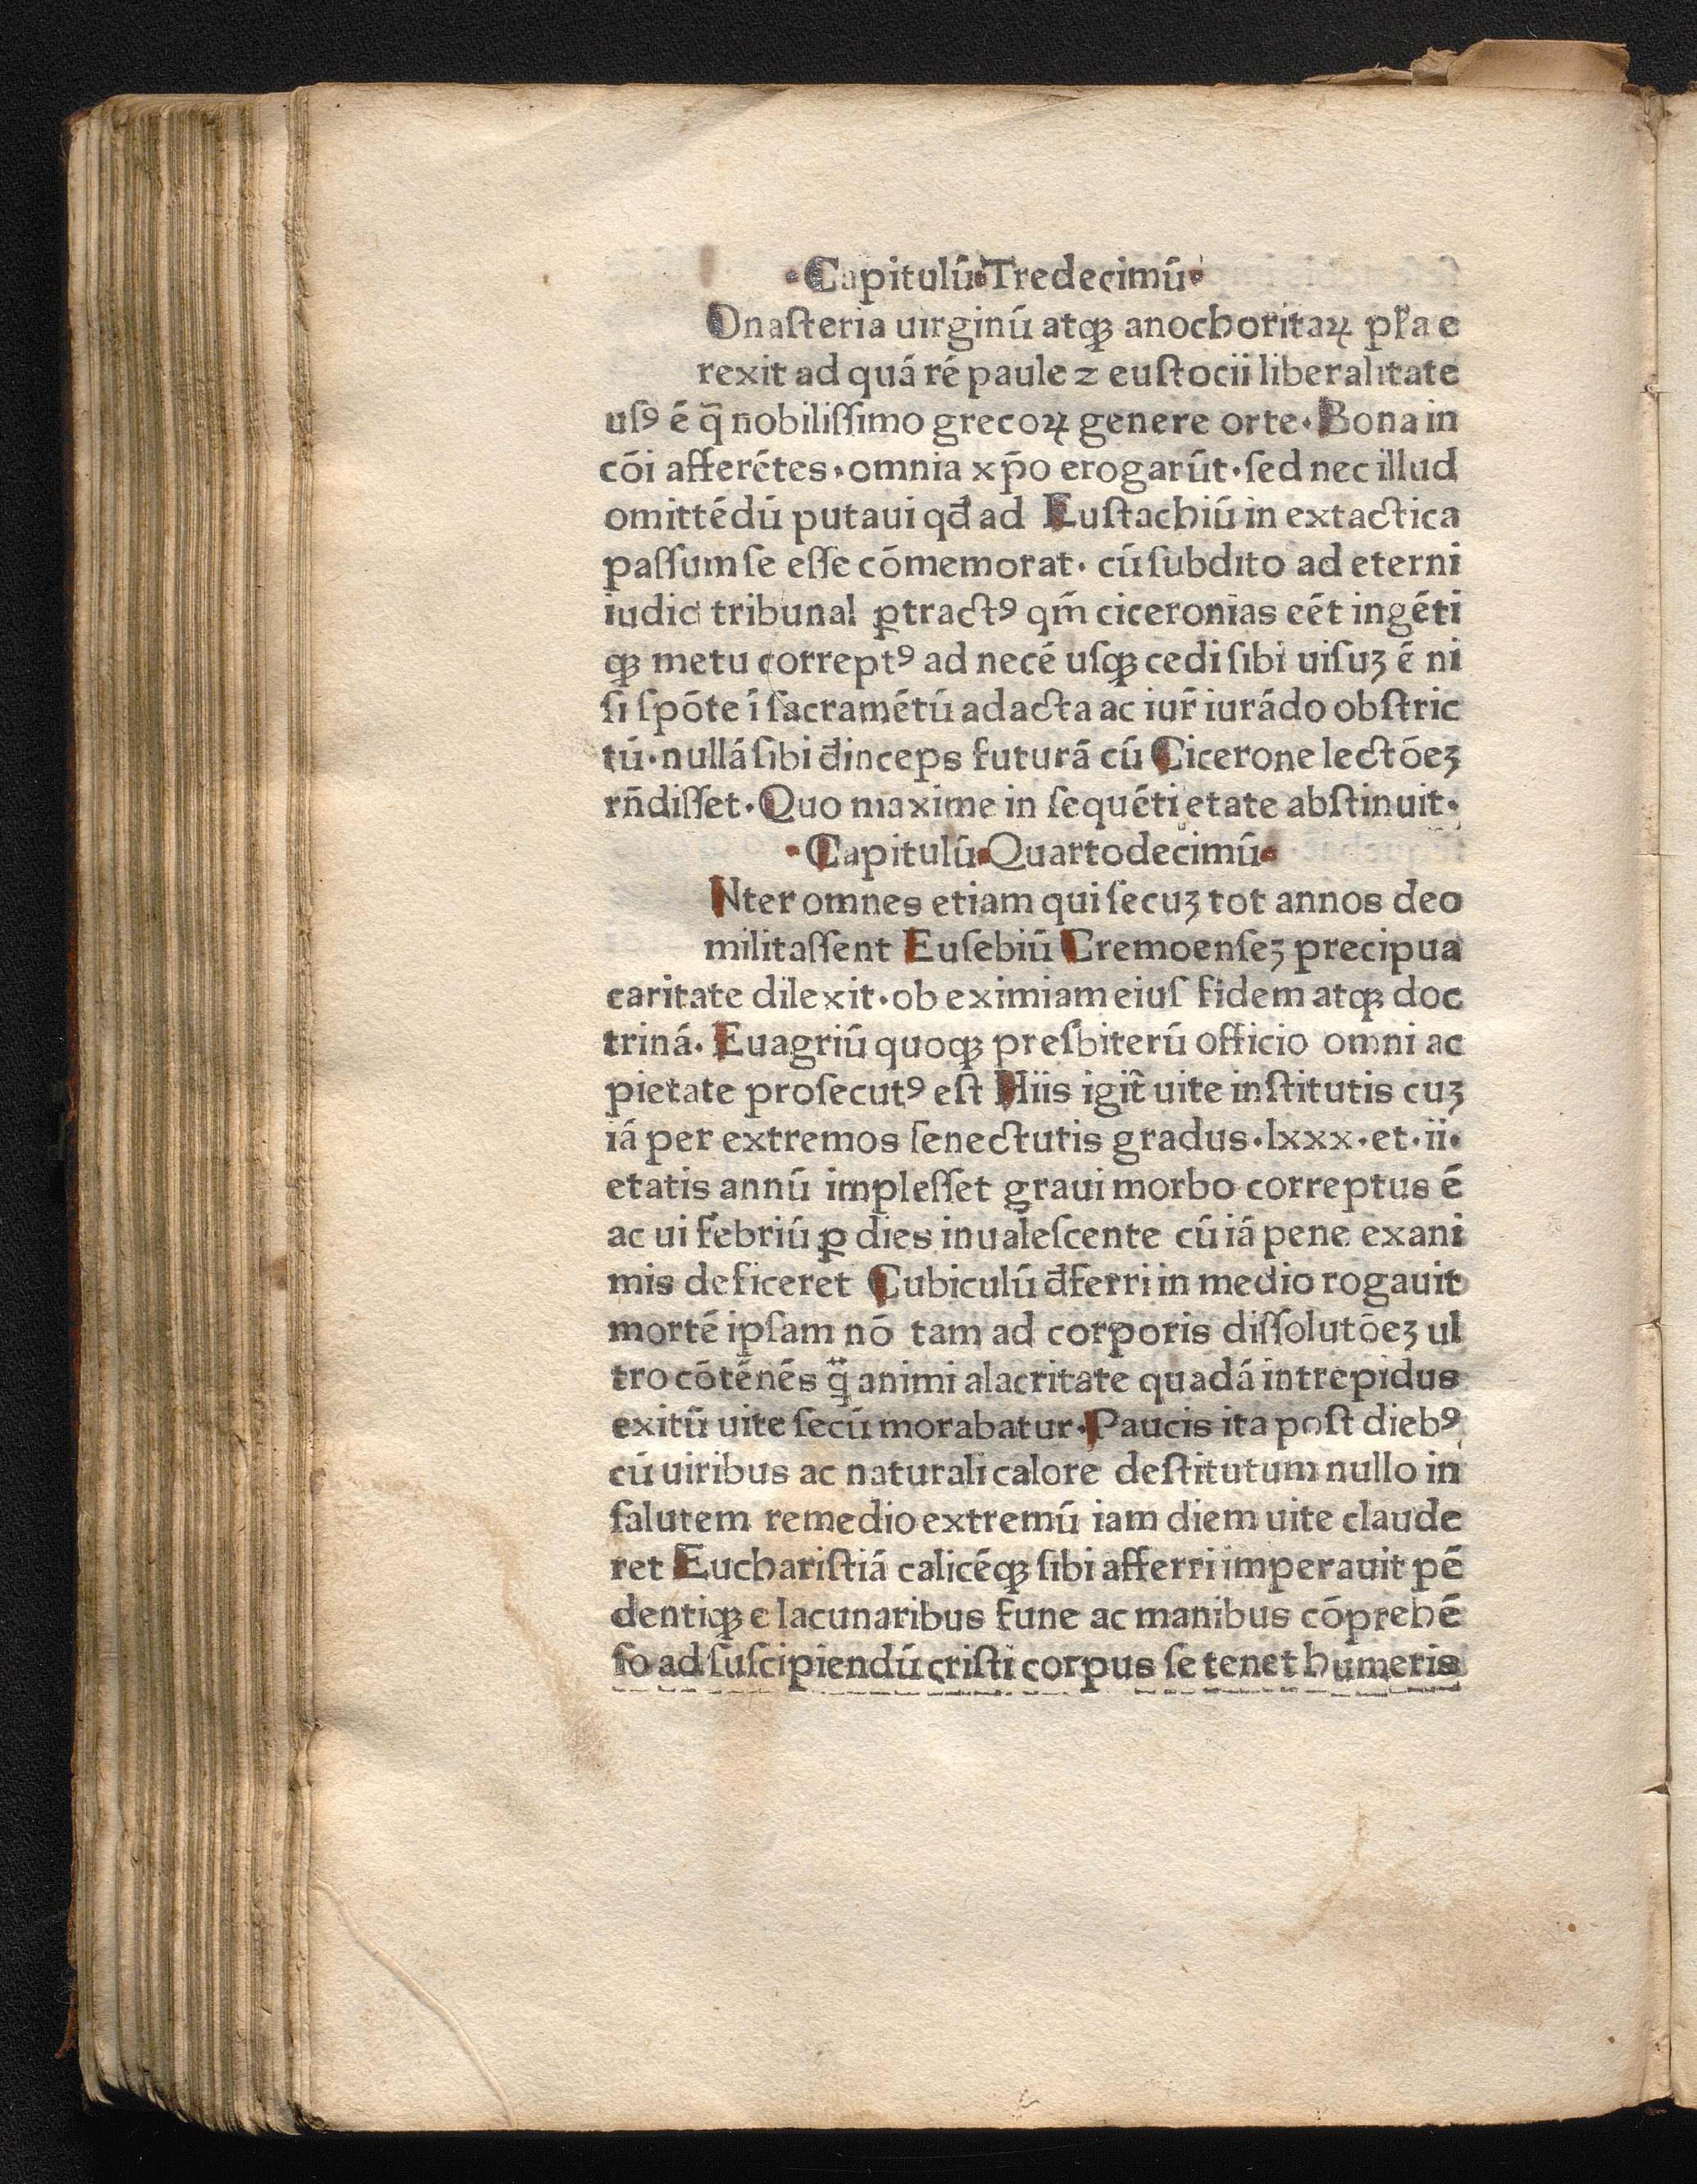 ·Capitulū·Tredecimū·
Onaſteria uirginū atqꝫ anochoritaꝝ pl'a e
rexit ad quā rē paule ⁊ euſtocii liberalitate
uſꝰ ē q̄ nobiliſſimo grecoꝝ genere orte·Bona in
cōi afferētes·omnia xp̄o erogarūt·ſed nec illud
omittēdū putaui qđ ad Euſtachiū in extactica
paſſum ſe eſſe cōmemorat· cū ſubdito ad eterni
iudici tribunal ꝑtractꝰ qm̄ ciceronias eēt ingēti
qꝫ metu correptꝰ ad necē uſqꝫ cedi ſibi uiſuꝫ ē ni
ſi ſpōte ī ſacramētū adacta ac iur̄ iurādo obſtric
tū·nullā ſibi đinceps futurā cū Cicerone lectōeꝫ
rn̄diſſet·Quo maxime in ſequēti etate abſtinuit·
·Capitulū·Quartodecimū·
Nter omnes etiam qui ſecuꝫ tot annos deo
militaſſent Euſebiū Cremoenſeꝫ precipua
caritate dilexit·ob eximiam eiuſ fidem atqꝫ doc
trinā·Euagriū quoqꝫ preſbiterū officio omni ac
pietate proſecutꝰ eſt Hiis igit̄ uite inſtitutis cuꝫ
iā per extremos ſenectutis gradus·lxxx·et·ii·
etatis annū impleſſet graui morbo correptus ē
ac ui febriū ꝑ dies inualeſcente cū iā pene exani
mis deficeret Cubiculū đferri in medio rogauit
mortē ipſam nō tam ad corporis diſſolutōeꝫ ul
tro cōtēnēs q̈ animi alacritate quadā intrepidus
exitū uite ſecū morabatur·Paucis ita poſt diebꝰ
cū uiribus ac naturali calore deſtitutum nullo in
ſalutem remedio extremū iam diem uite claude
ret Euchariſtiā calicēqꝫ ſibi afferri imperauit pē
dentiqꝫ e lacunaribus fune ac manibus cōprehē
ſo ad ſuſcipiendū criſti corpus ſe tenet humeris